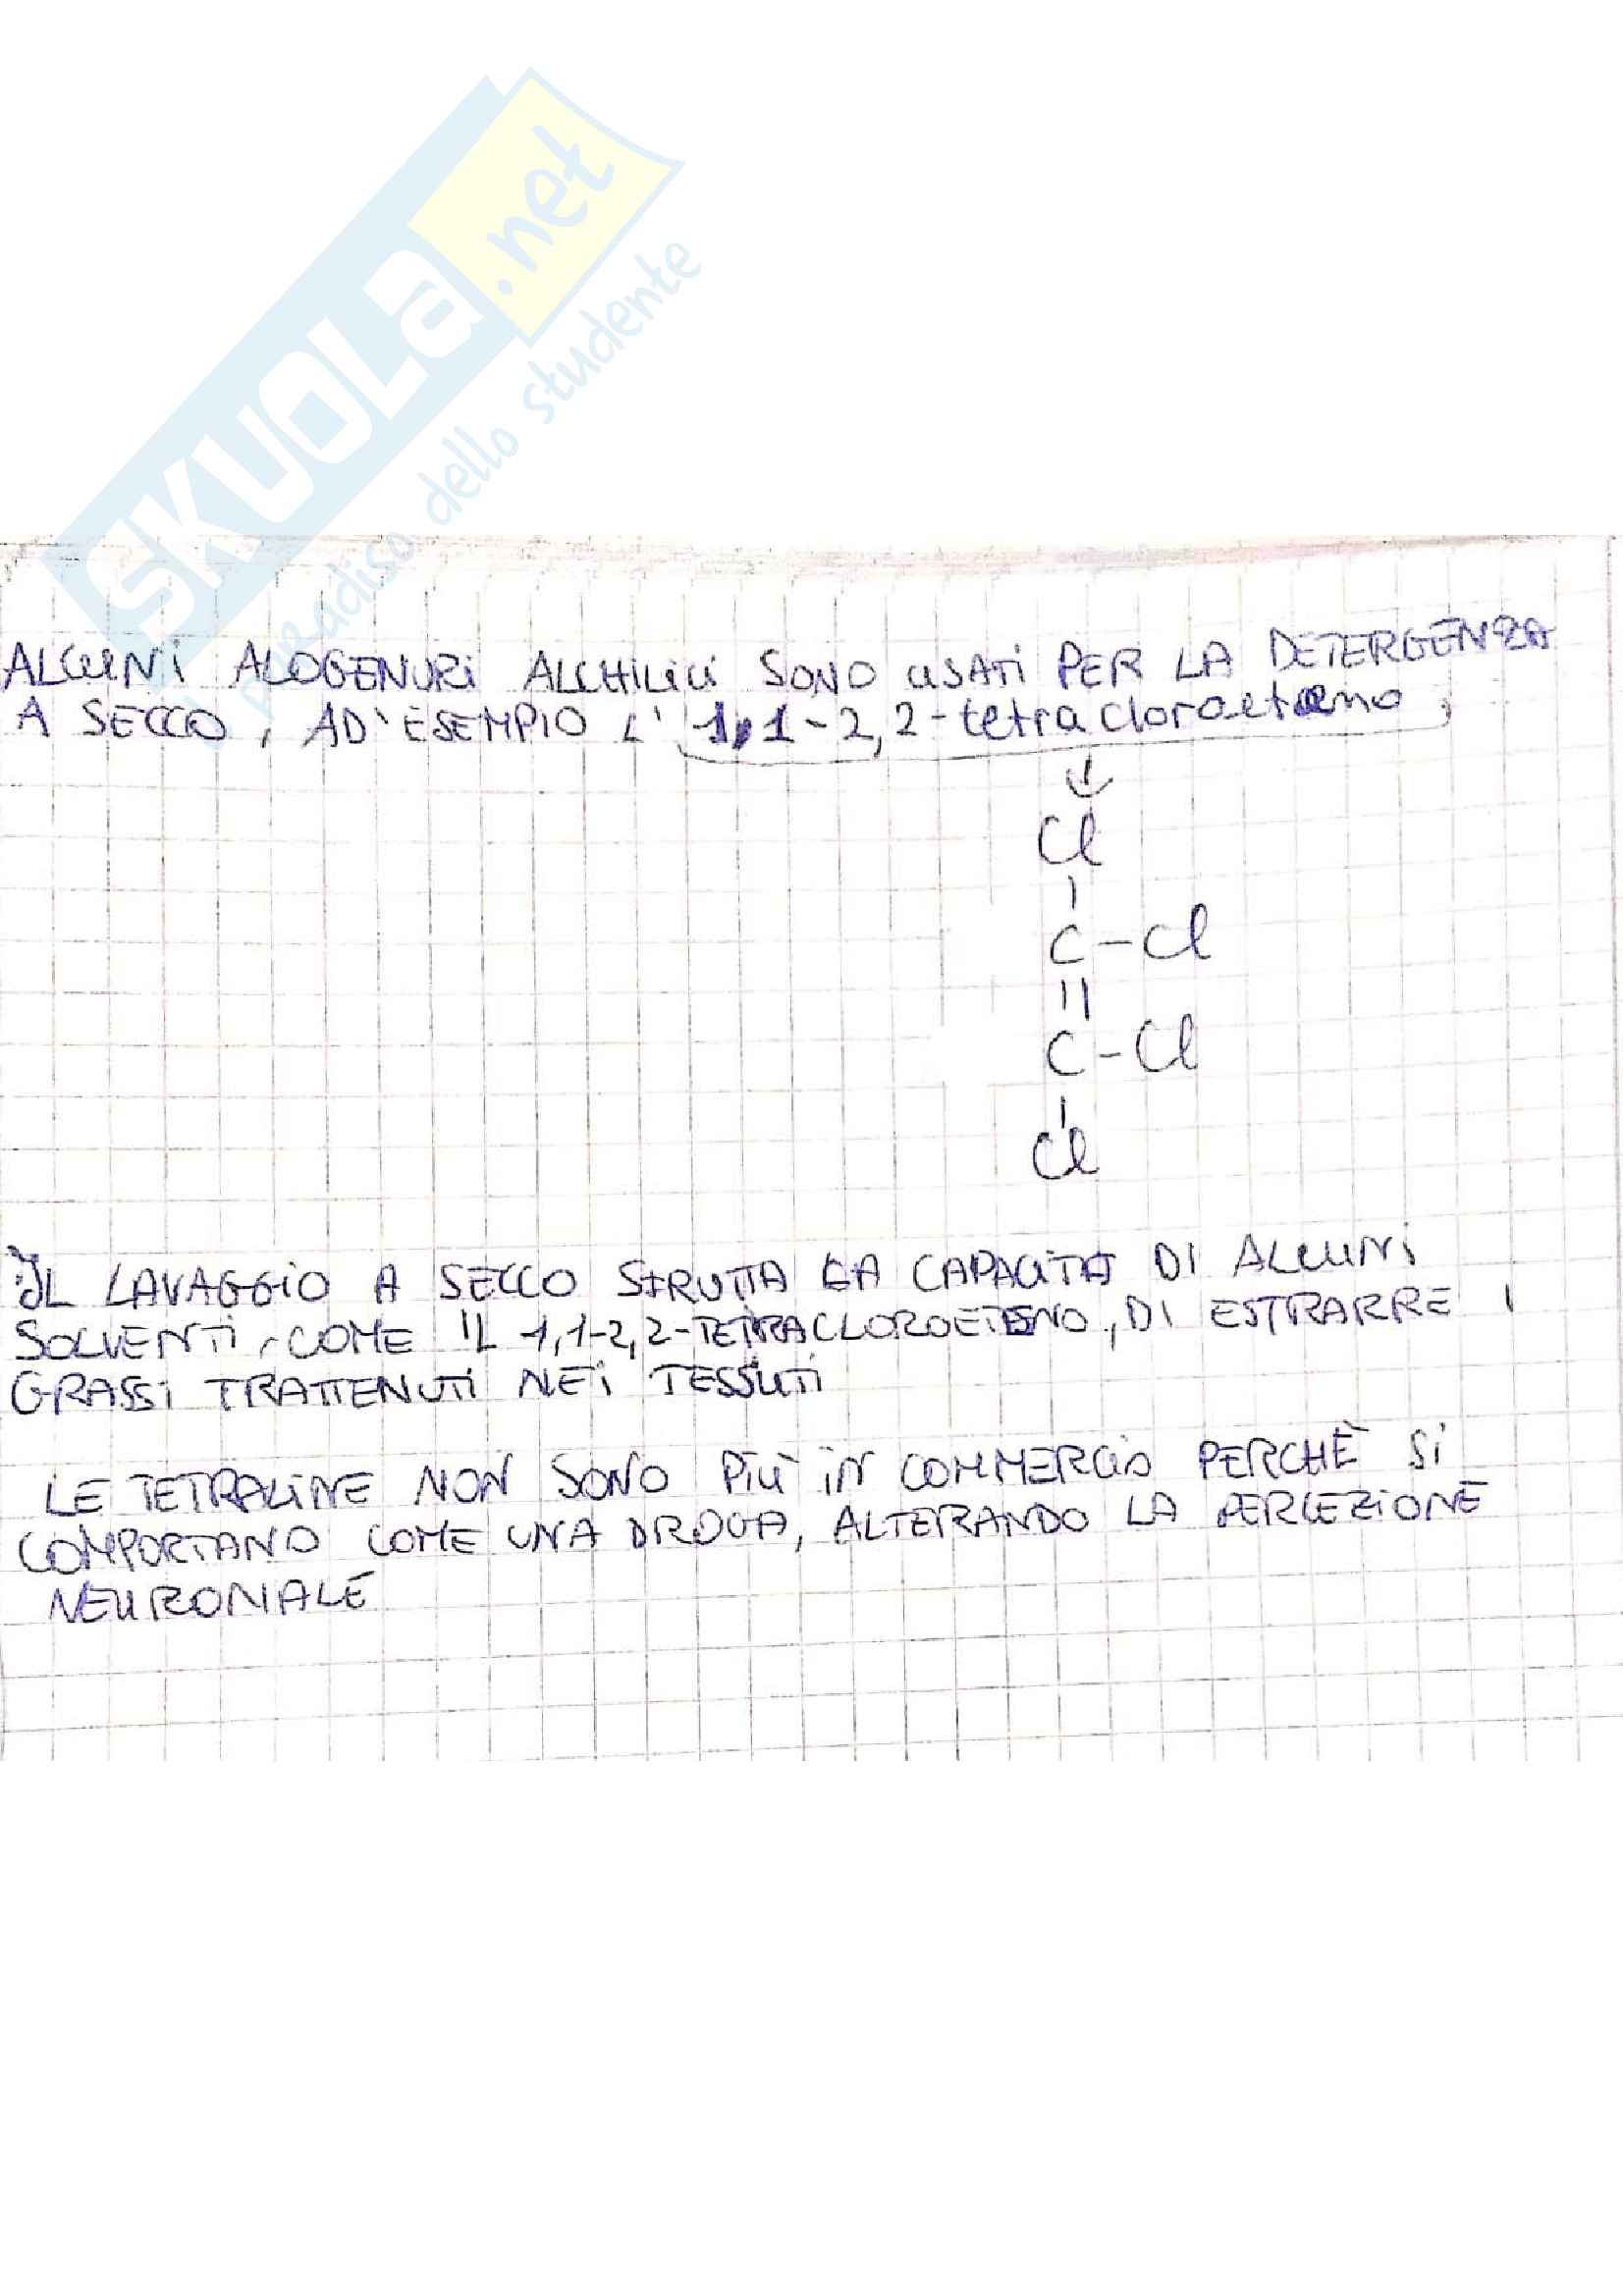 SKUOLA.net
il paradiso dello studente
ALCUNI ALOGENURI ALCHILICI SONO USATI PER LA DETERGENZA
A SECCO, AD'ESEMPIO L' 1,1-2,2-tetracloroetene,
↓
Cl
|
C-Cl
||
C-Cl
|
Cl
IL LAVAGGIO A SECCO SFRUTTA LA CAPACITÀ DI ALCUNI
SOLVENTI, COME IL 1,1-2,2-TETRACLOROETENO, DI ESTRARRE I
GRASSI TRATTENUTI NEI TESSUTI
LE TETRALINE NON SONO PIÙ IN COMMERCIO PERCHÈ SI
COMPORTANO COME UNA DROGA, ALTERANDO LA PERCEZIONE
NEURONALE